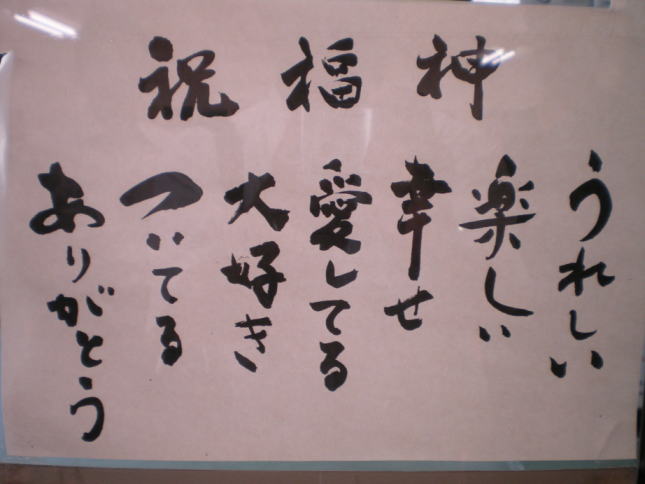 神福祝
うれしい
楽しい
幸せ
愛してる
大好き
ついてる
ありがとう